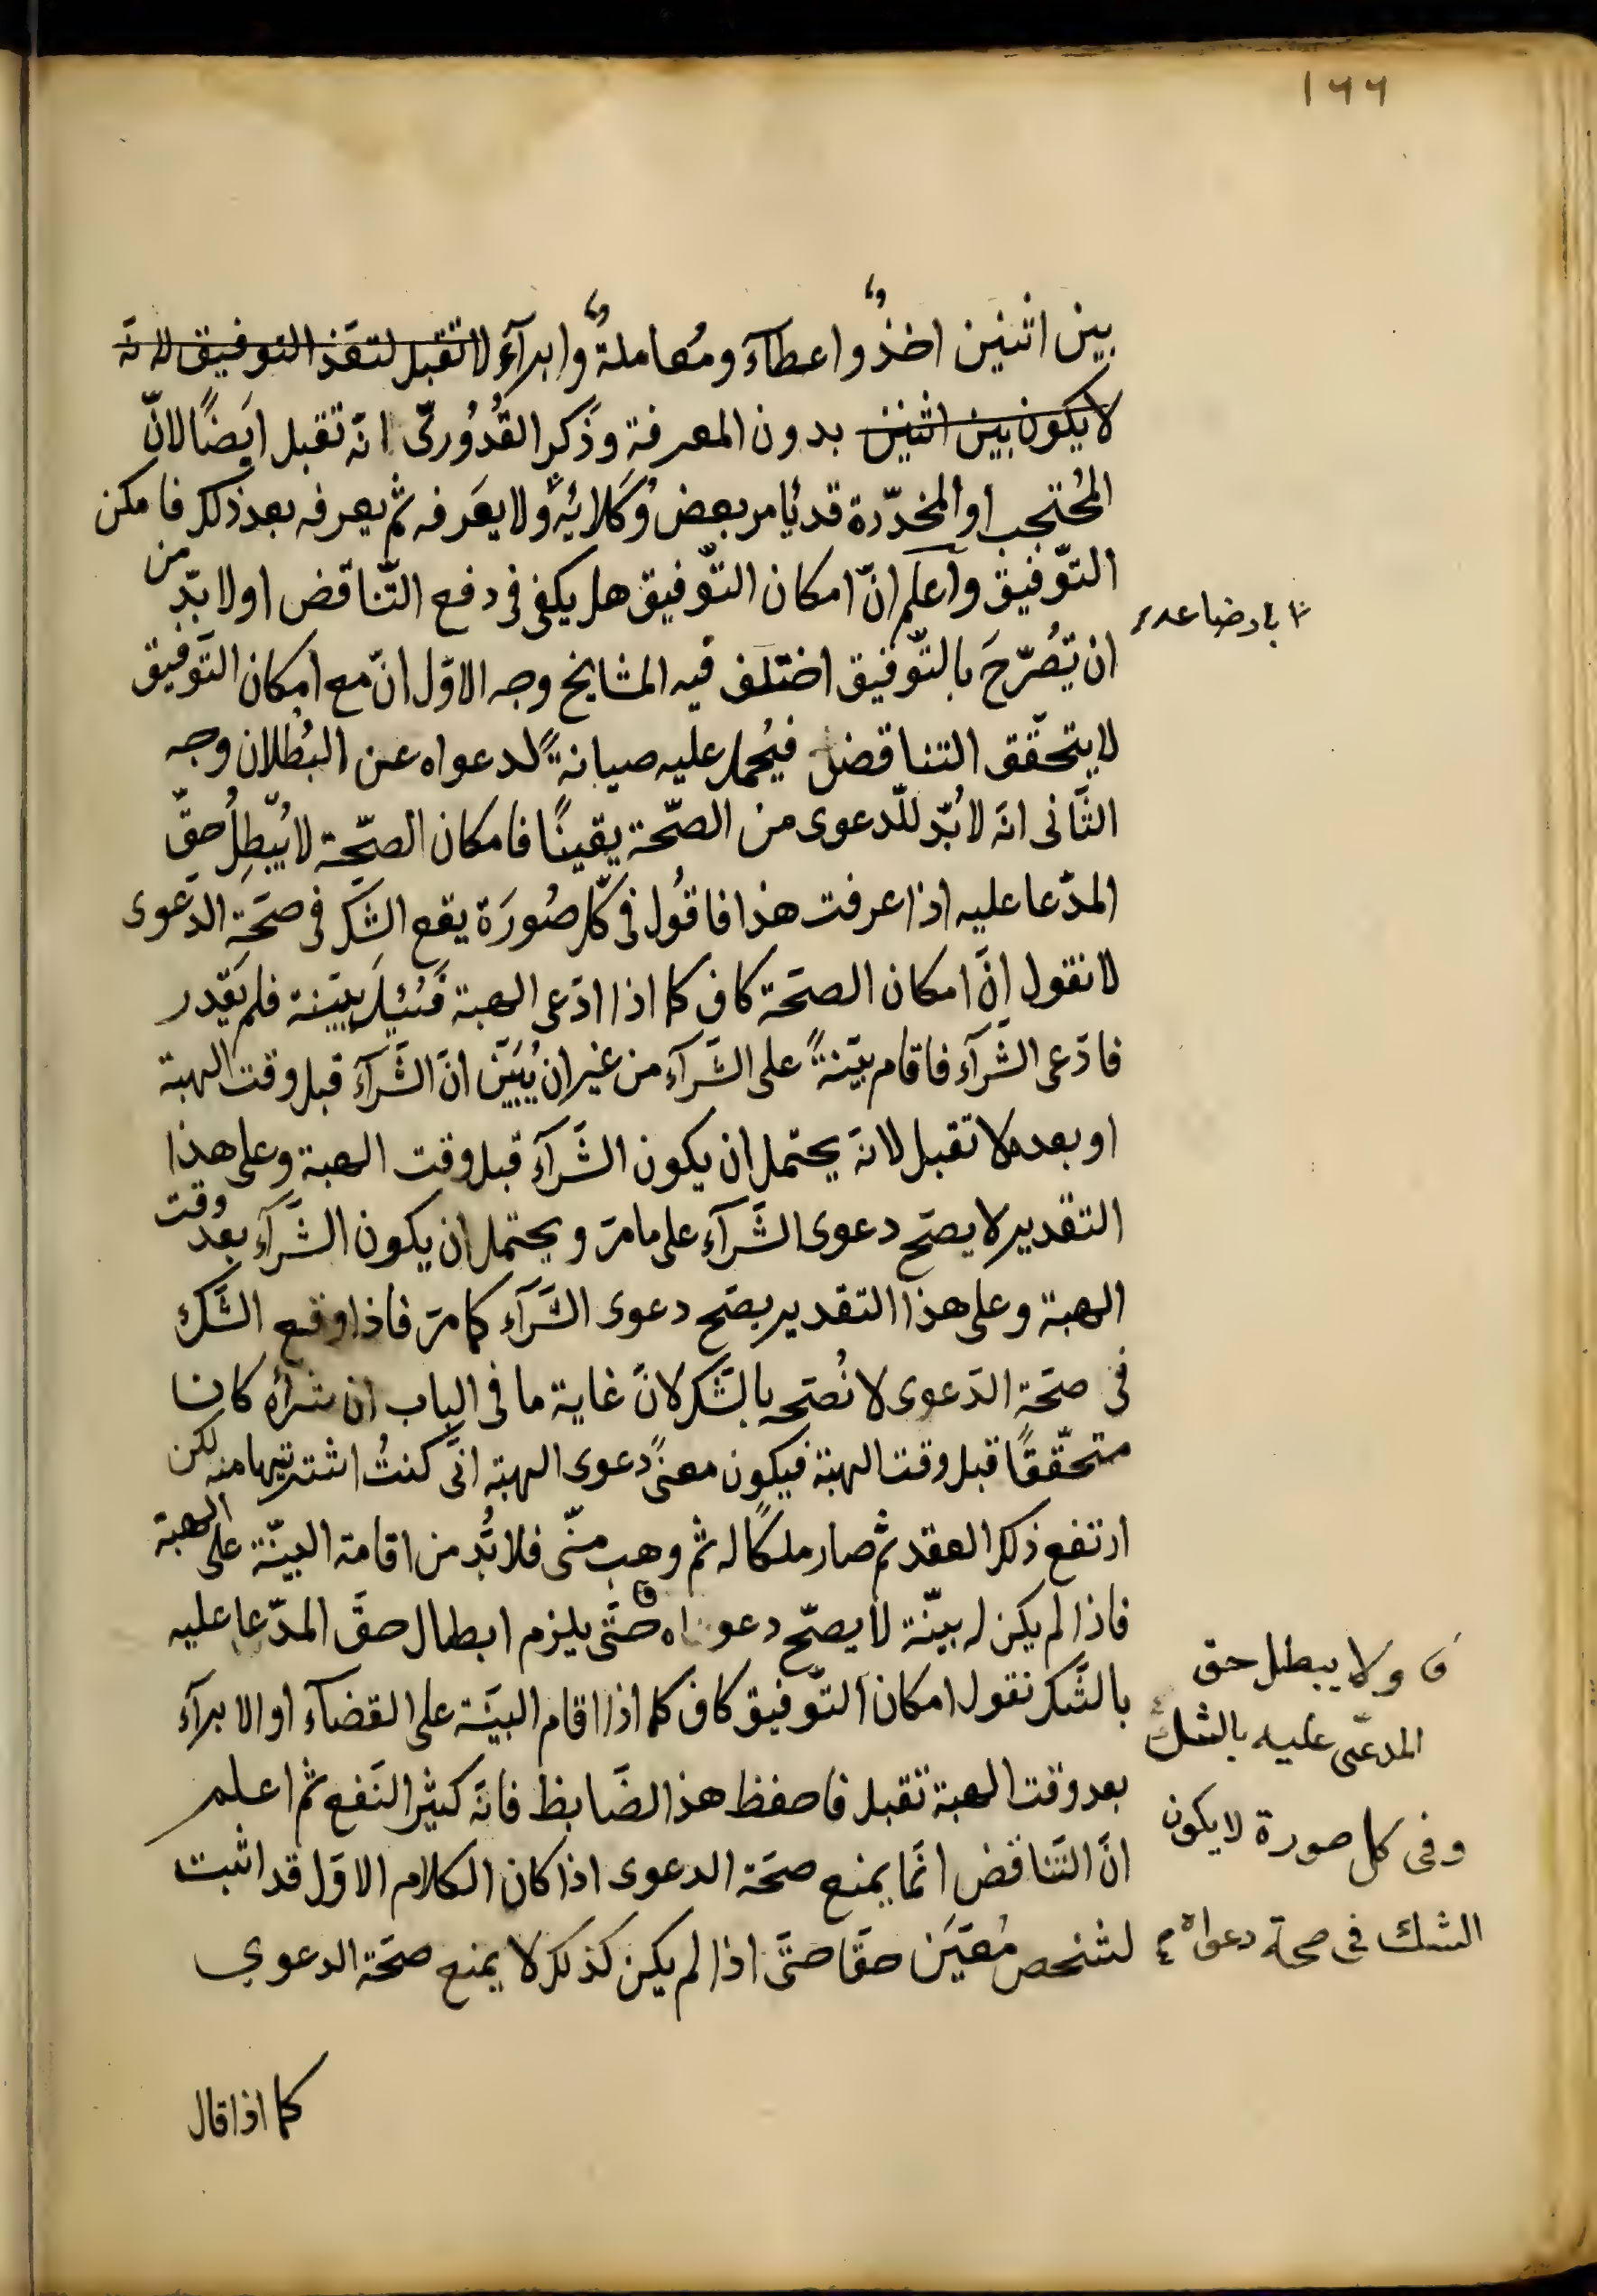 ١٦٦
بين اثنين اخذٌ و اعطآء ومُعاملةٌ و ابرآء لا تقبل لتعذّر التوفيق لانّه
لا يكون بين اثنين بدون المعرفة وذَكر القُدُورىّ انّه تقبل ايَضًا لانّ
المُحتجب او المخدّرة قد يُامر بعض وُكَلائِه ولا يعَرفه ثم يعرفه بعد ذلك فامكن
التّوفيق واعلم انّ امكان التّوفيق هل يكفى فى دفع التّناقض او لا بدّ من
ان تُصُرّحَ بالتّوفيق اختلف فيه المشايخ وجه الاوّل انّ مع امكان التّوفيق
لا يتحقّق التناقض فيُحمل عليه صيانةً لدعواه عن البُطلان وجه
الثَّانى انّه لا بُدّ للدّعوى من الصّحة يقينًا فامكان الصّحة لا يُبْطِلُ حقّ
المدّعا عليه اذا عرفت هذا فاقُول فى كلّ صُورَة يقع الشك فى صحّة الدعوى
لا نقول انّ امكان الصحّة كاف كما اذا ادّعى الهبة فسُئِل ببيّنة فلم يَقدر
فادّعى الشّرآء فاقام بيّنةً على الشّرآء من غير ان يُبَيّن انّ الشّرآء قبل وقت الهبة
او بعده لا تقبل لانّه يحتمل ان يكون الشّرآء قبل وقت الهبة وعلى هذا
التقدير لا يصحّ دعوى الشّرآء على ما مرّ و يحتمل ان يكون الشّرآء بعْد وقت
الهبة وعلى هذا التقدير يصحّ دعوى الشّرآء كما مرّ فاذا وقع الشّك
فى صحّة الدّعوى لا نُصحّه بالشّك لانّ غاية ما فى الباب ان شرآه كانا
متحقّقًا قبل وقت الهبة فيكون معنىً دعوى الهبة انّى كنتُ اشتريتها منه لكن
ارتفع ذلك العقد ثم صار ملكًا له ثم وهب منّى فلا بُدّ من اقامة البيّنة على الهبة
فاذا لم يكن له بيّنة لا يصحّ دعواه حتّى يلزم ابطال حقّ المدّعا عليه
بالشّك نقول امكان التّوفيق كاف كما اذا اقام البيّنة على القضآء او الابرآء
بعد وقت الهبة تقبل فاحفظ هذ الضّابظ فانّه كثيْر النّفع ثم اعلم
انّ التّناقض انّما يمنع صحّة الدعوى اذا كان الكلام الاوّل قد اثبت
لشخص مُعَيّن حقّا حتّى اذا لم يكن كذلك لا يمنع صحّة الدعوي
كما اذا قال
ولا يبطل حق
المدعى عليه بالشك
وفى كل صورة لا يكون
الشك فى صحة دعواه